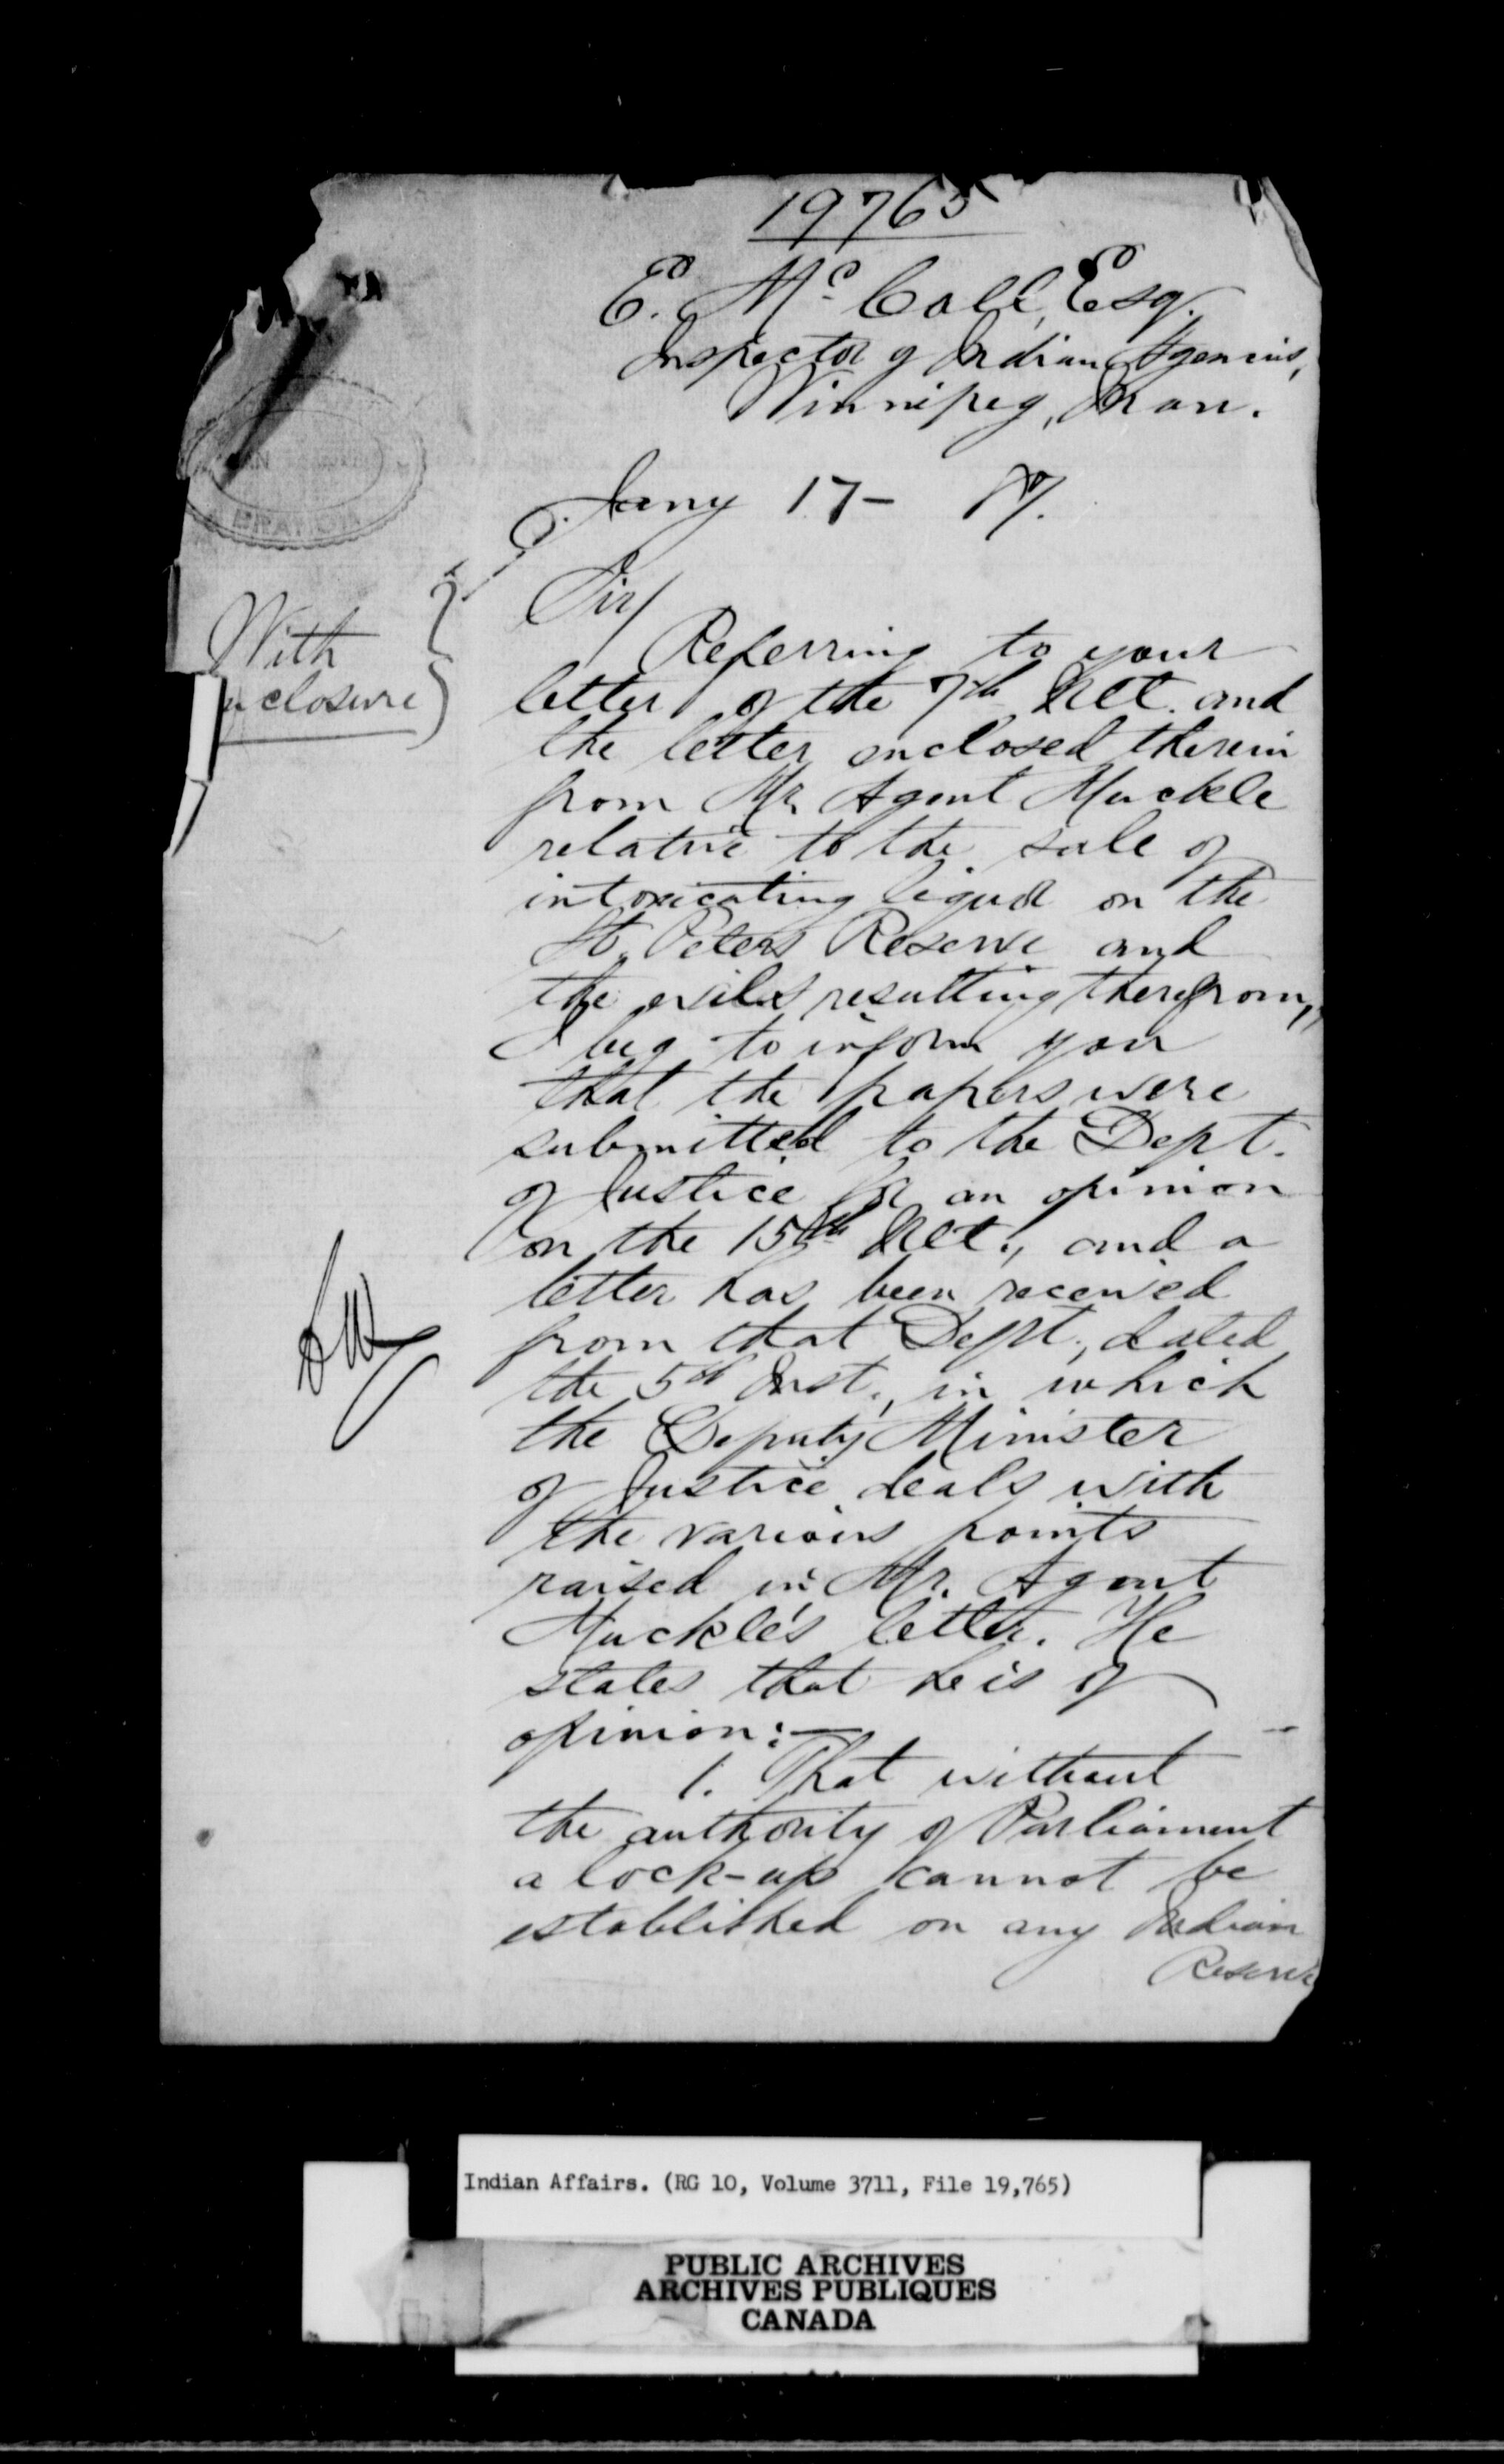 19765
E. Mc. Coll, Esq.
Inspector of Indian Agencies,
Winnipeg, Man.
Jany 17- 87.
With
closure
Sir/
Referring to your
letter of the 7th Ult. and
the letter enclosed therein
from Mr. Agent Muckle
relative to the sale of
intoxicating liquor on the
St. Peters Reserve and
the evils resulting therefrom,
I beg to inform you
that the papers were
submitted to the Dept.
of Justice for an opinion
on the 15th Ult., and a
letter has been received
from that Dept., dated
the 5th Inst., in which
the Deputy Minister
of Justice deals with
the various points
raised in Mr. Agent
Muckle's letter. He
states that he is of
opinion:—
1. That without
the authority of Parliament
a lock-up cannot be
established on any Indian
Reserve
Indian Affairs. (RG 10, Volume 3711, File 19,765)
PUBLIC ARCHIVES
ARCHIVES PUBLIQUES
CANADA